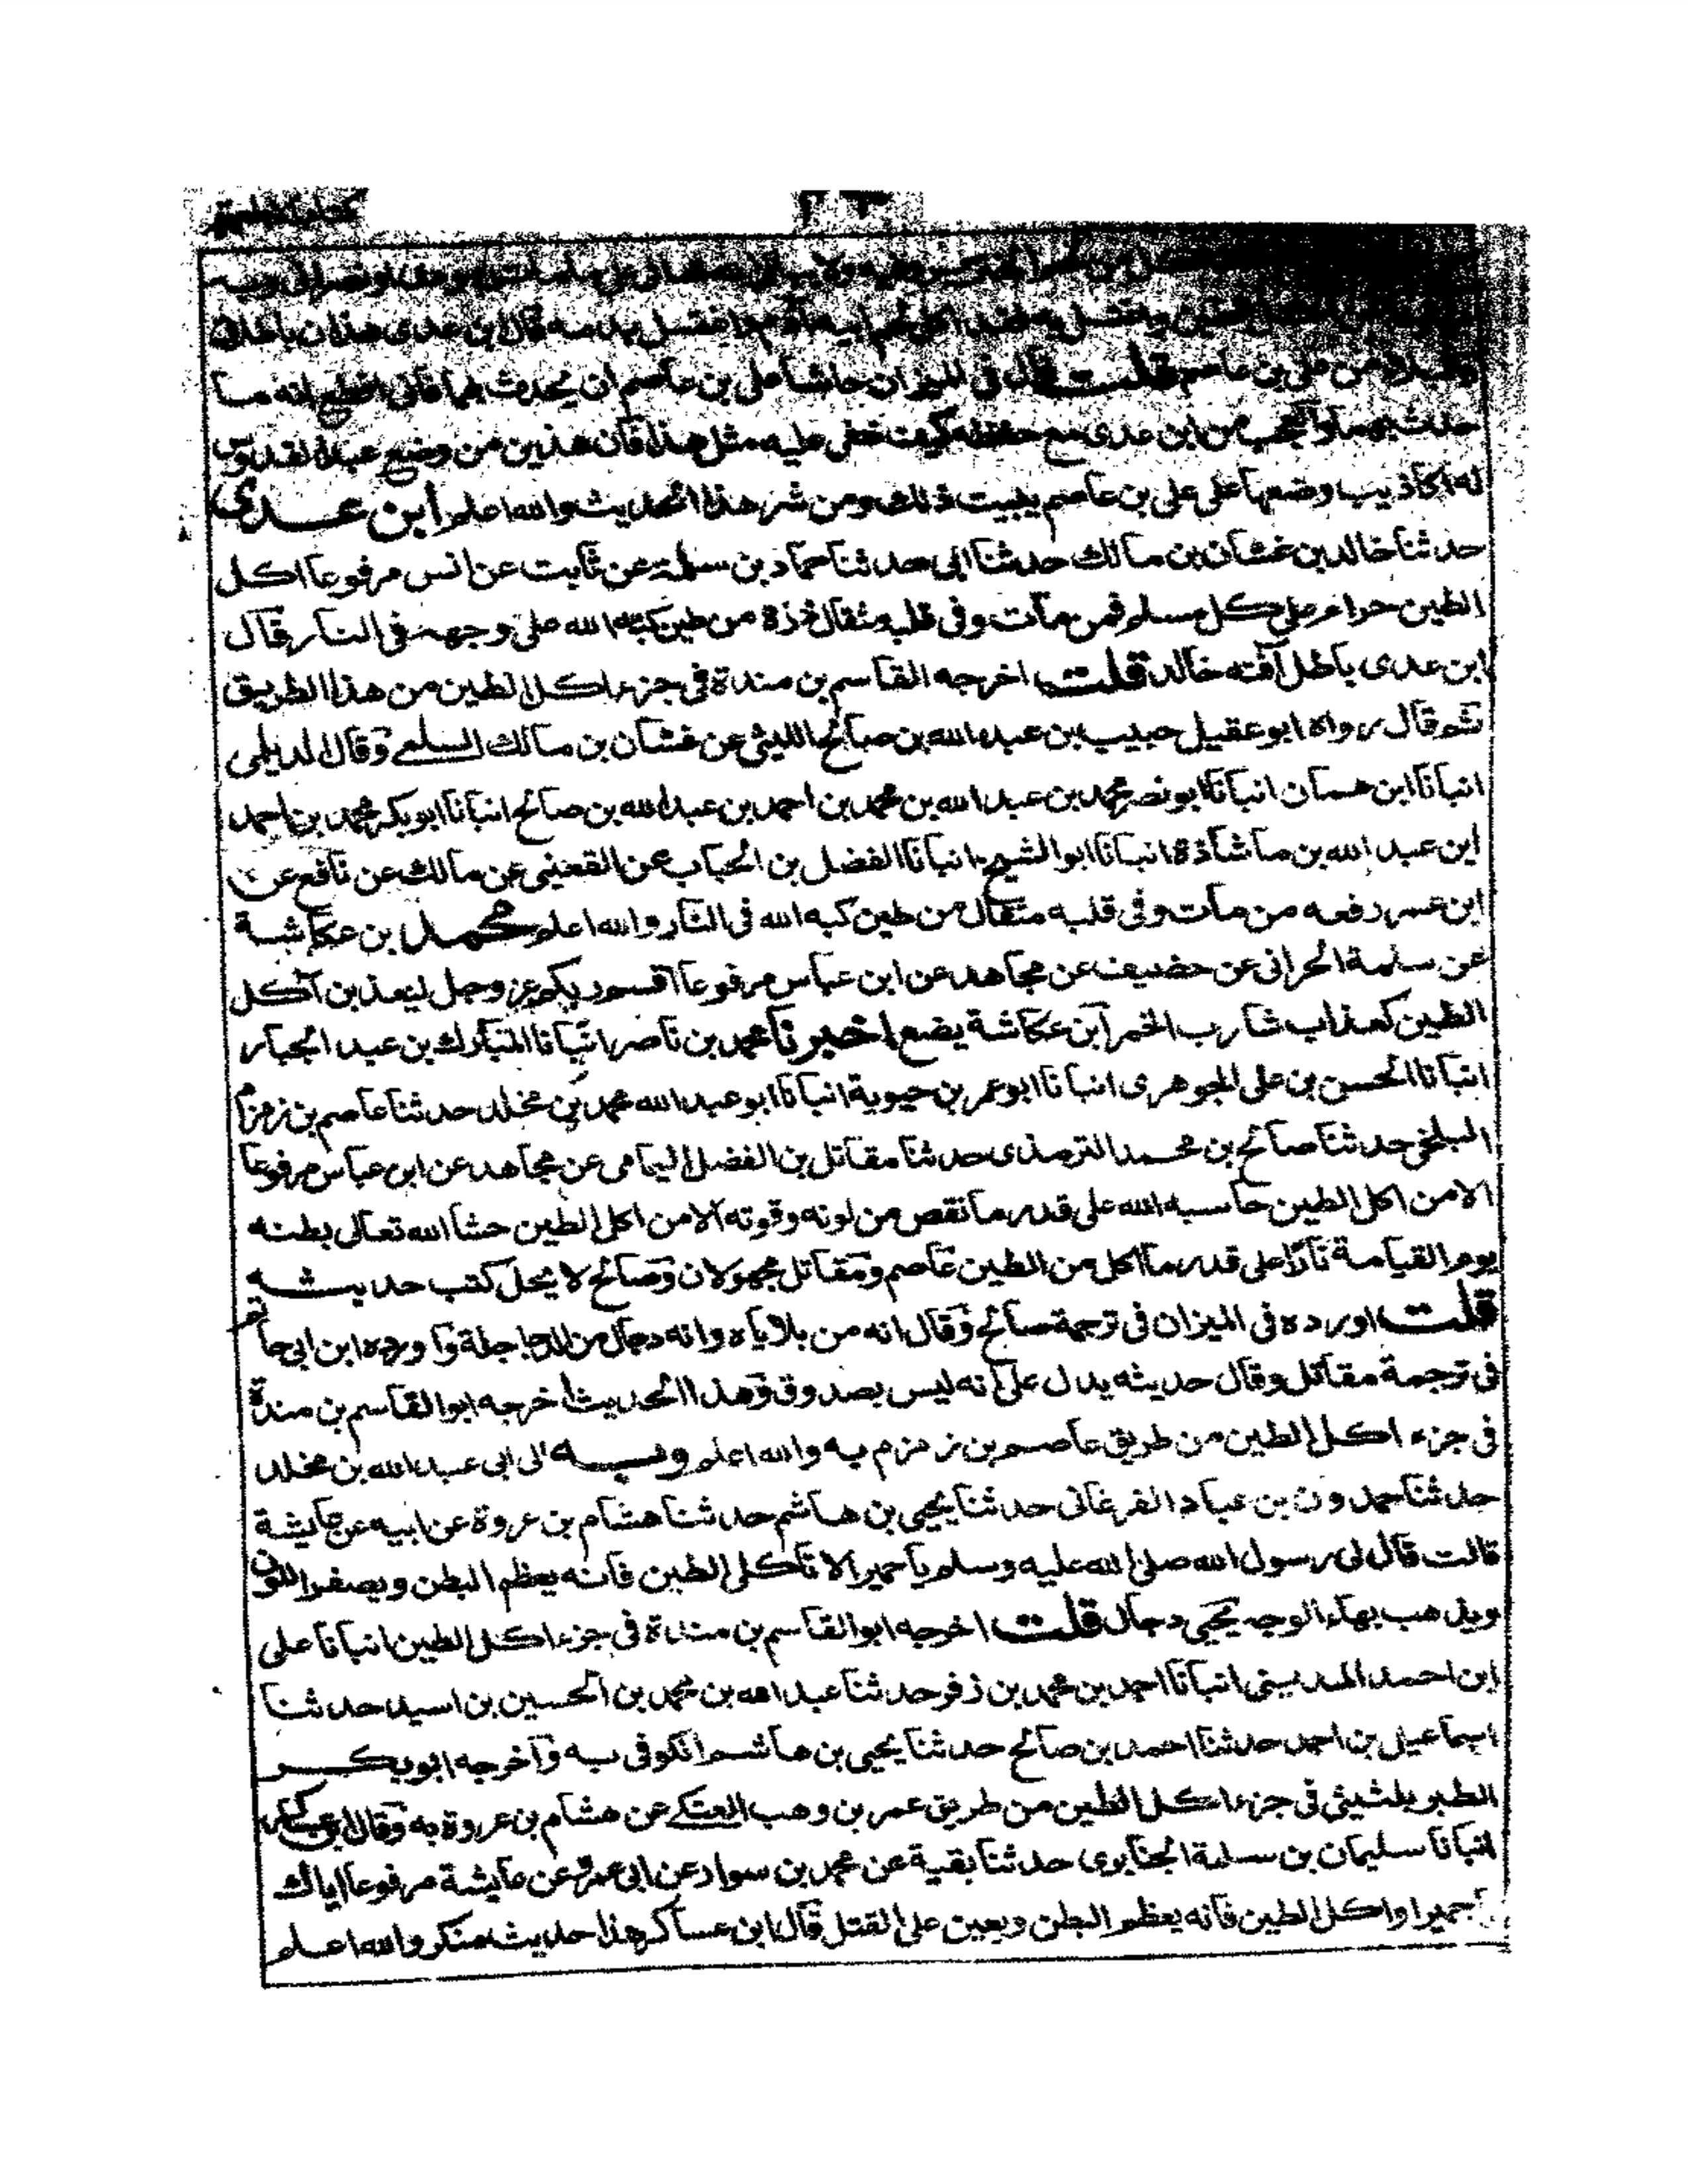 الطين واغتسل به فقد اكل لحم ابيه آدم واغتسل بدمه قال ابن عدى هذان باطلان
من علي بن عاصم قلت قال فى الميزان حاشا على بن عاصم ان يحدث بهما فانى اقطع انه مـا
حدث بهما والعجب من ابن عدى مع حفظه كيف خفى عليه مثل هذا فان هذين من وضع عبد القدوس
له اكاذيب وضعها على على بن عاصم يبيت ذلك ومن شر هذا الحديث والله اعلم ابن عــدى
حدثنا خالد بن غسان بن مالك حدثنا ابى حدثنا حماد بن سلمة عن ثابت عن انس مرفوعا اكل
الطين حرام على كل مسلم فمن مات وفى قلبه مثقال ذرة من طين كبه الله على وجهه فى النار قال
ابن عدى باطل آفته خالد قلت اخرجه القاسم بن مندة فى جزء اكل الطين من هذا الطريق
ثم قال رواه ابو عقيل حبيب بن عبد الله بن صالح الليثى عن غسان بن مالك السلمے وقال الديلمى
انبأنا ابن حمان انبأنا ابو نصر محمد بن عبد الله بن محمد بن احمد بن عبد الله بن صالح انبأنا ابو بكر محمد بن احمد
ابن عبد الله بن ماشاذة انبأنا ابو الشيخ انبأنا الفضل بن الحباب عن القعنبى عن مالك عن نافع عن
ابن عمر رفعه من مات وفى قلبه مثقال من طين كبه الله فى النار والله اعلم محمــد بن عكاشة
عن سلمة الحرانى عن خصيف عن مجاهد عن ابن عباس مرفوعا اقسم ربكم عز وجل ليعذبن آكل
الطين كعذاب شارب الخمر ابن عكاشة يضع اخبرنا محمد بن ناصر انبأنا المبارك بن عبد الجبار
انبأنا الحسن بن على الجوهرى انبأنا ابو عمر بن حيوية انبأنا ابو عبد الله محمد بن مخلد حدثنا عاصم بن زمزم
البلخى حدثنا صالح بن محمد الترمذى حدثنا مقاتل بن الفضل اليمامى عن مجاهد عن ابن عباس مرفوعا
الا من اكل الطين حاسبه الله على قدر ما نقص من لونه وقوته ألا من اكل الطين حشا الله تعالى بطنه
يوم القيامة نارا على قدر ما اكل من الطين عاصم ومقاتل مجهولان وصالح لا يحل كتب حديـثـه
قلت اورده فى الميزان فى ترجمة صالح وقال انه من بلاياه وانه دجال من الدجاجلة واورده ابن ابى حاتم
فى ترجمة مقاتل وقال حديثه يدل على انه ليس بصدوق وهذا الحديث اخرجه ابو القاسم بن مندة
فى جزء اكل الطين من طريق عاصم بن زمزم به والله اعلم وبــه الى ابى عبد الله بن مخلد
حدثنا حمدون بن عباد الفرغانى حدثنا يحيى بن هاشم حدثنا هشام بن عروة عن ابيه عن عايشة
قالت قال لى رسول الله صلى الله عليه وسلم يا حميرا لا تاكلى الطين فانه يعظم البطن ويصفر اللون
ويذهب بهاء الوجه يحيى دجال قلت اخرجه ابو القاسم بن مندة فى جزء اكل الطين انبأنا على
ابن احمد المدينى انبأنا احمد بن محمد بن زفر حدثنا عبد الله بن محمد بن الحسين بن اسيد حدثنا
اسماعيل بن احمد حدثنا احمد بن صالح حدثنا يحيى بن هاشم الكوفى به وآخرجه ابو بكــر
الطبريثيثى فى جزء اكل الطين من طريق عمر بن وهب العتكے عن هشام بن عروة به وقال ابن عساكر
انبأنا سليمان بن سلمة الجنابرى حدثنا بقية عن محمد بن سوار عن ابى عمر عن عايشة مرفوعا اياك
حميرا واكل الطين فانه يعظم البطن ويعين على القتل قال ابن عساكر هذا حديث منكر والله اعلم